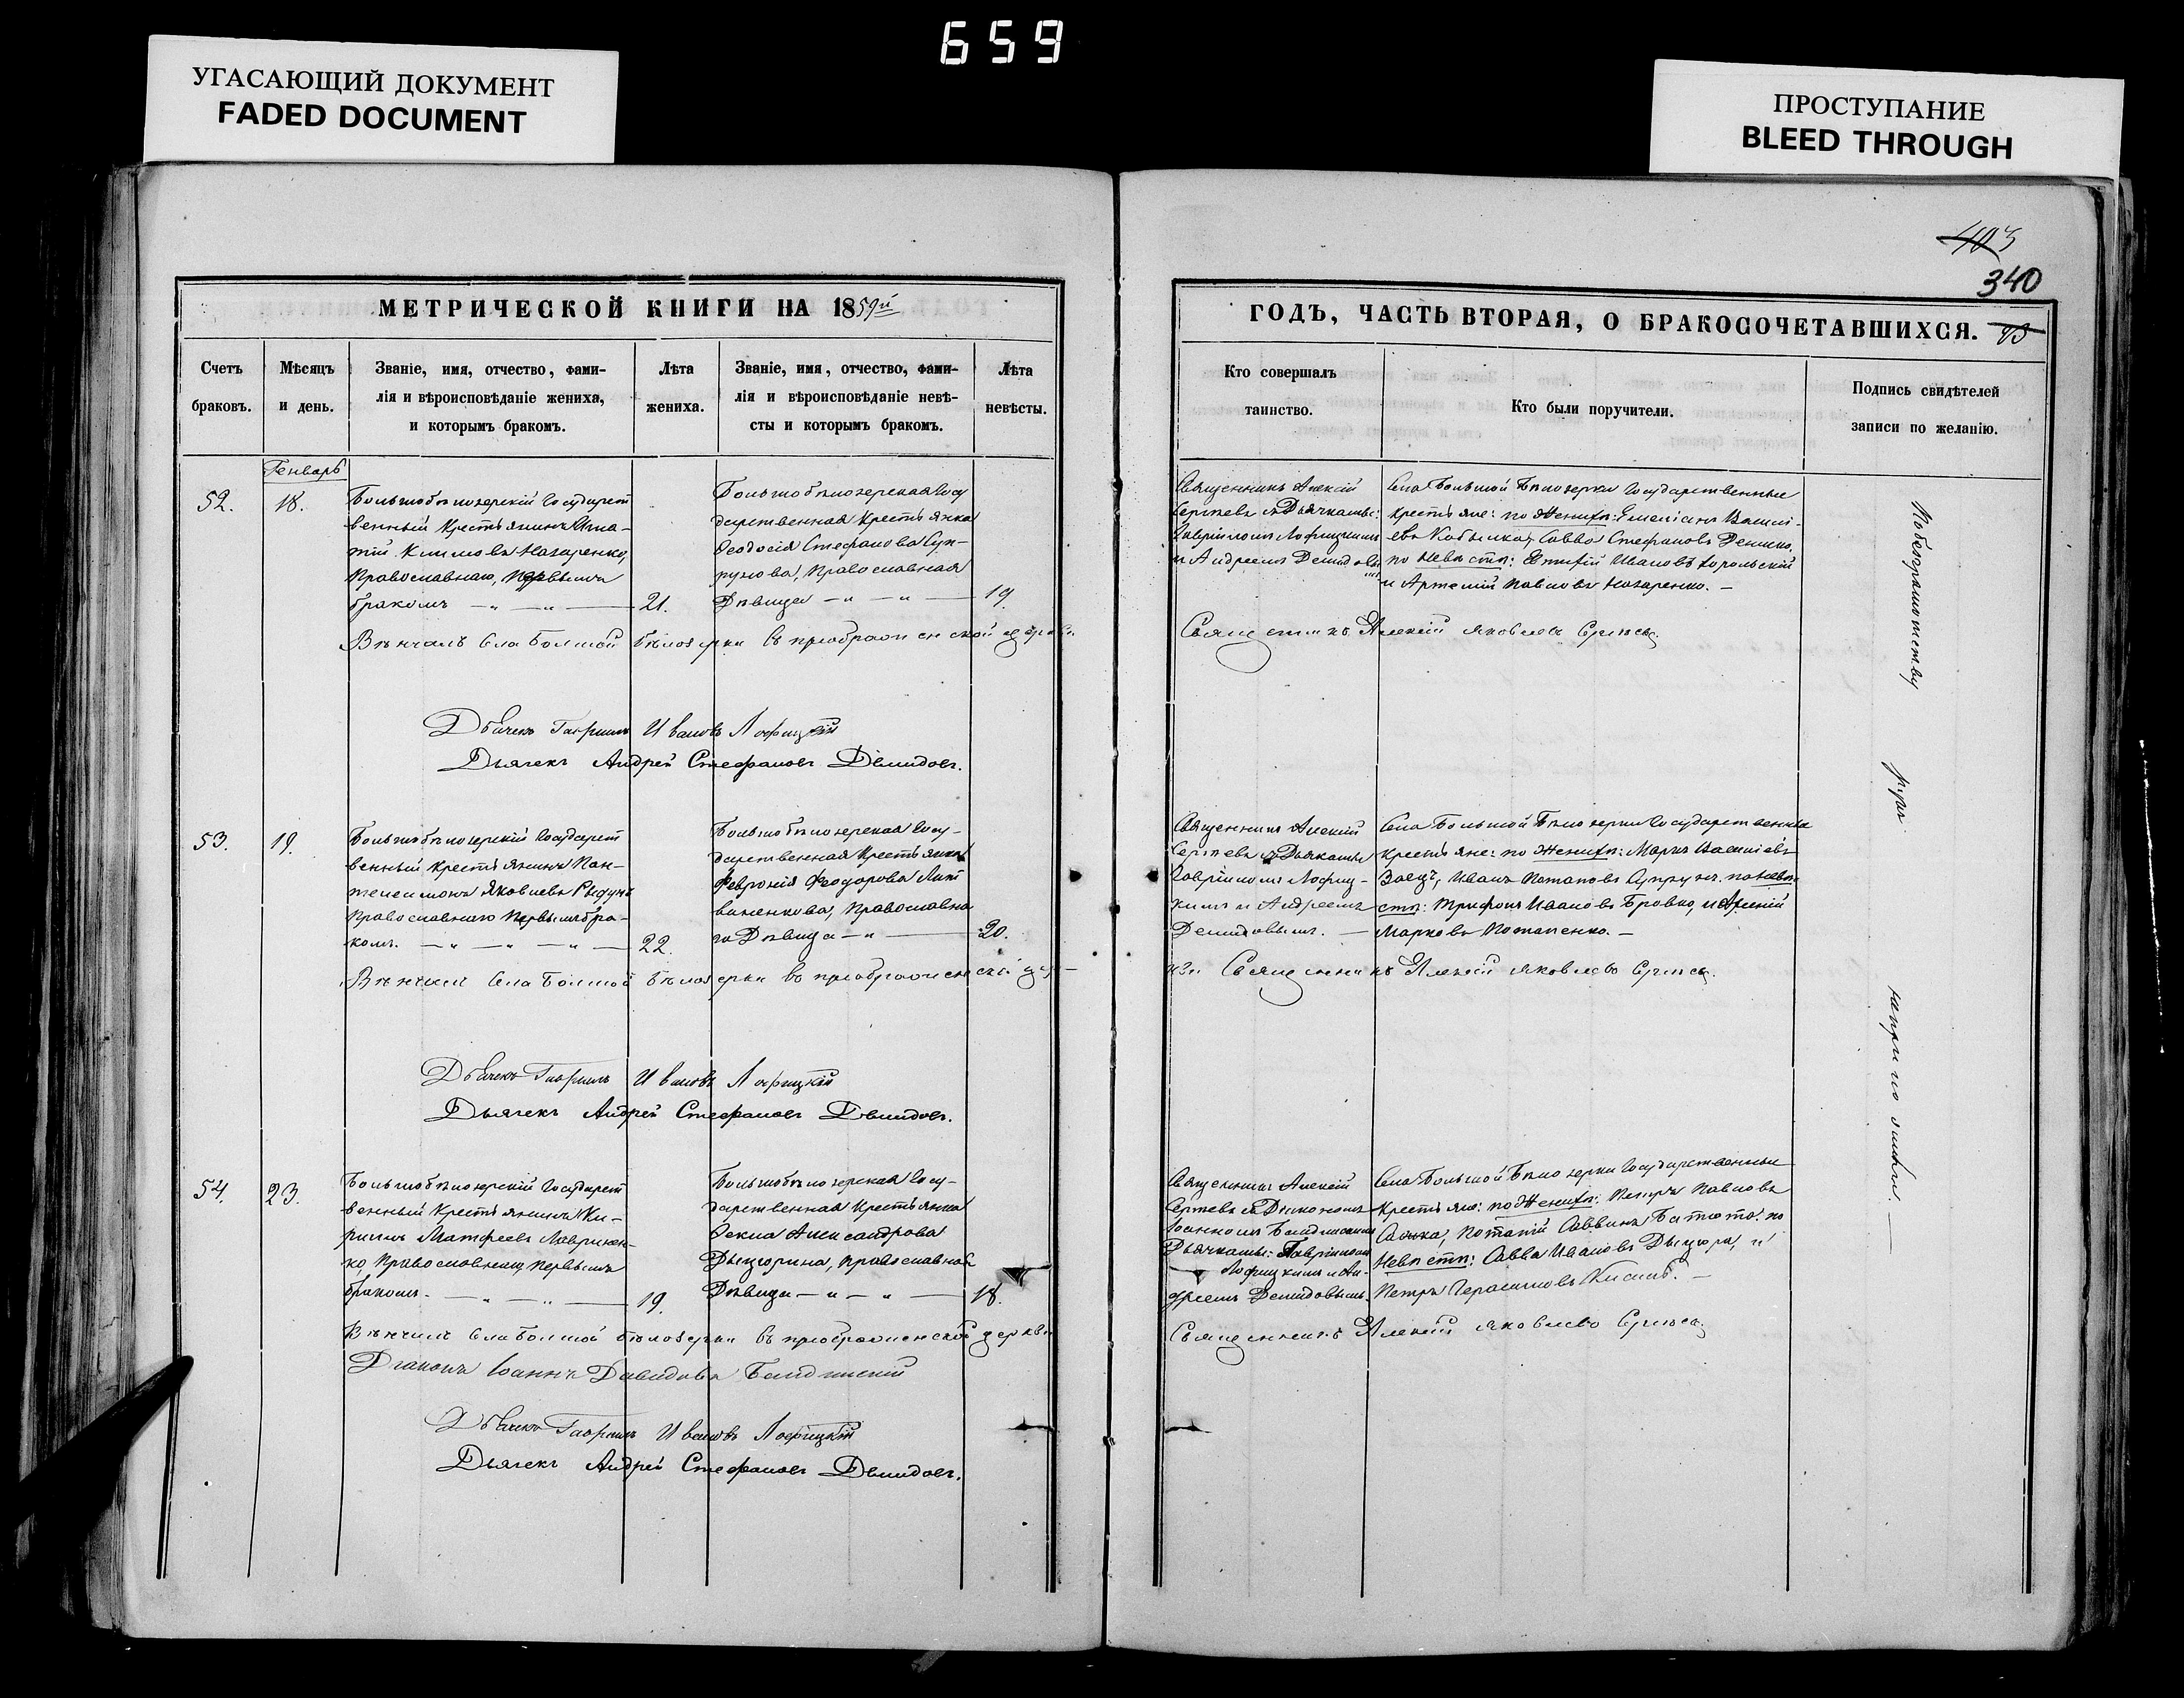 659
УГАСАЮЩИЙ ДОКУМЕНТ
FADED DOCUMENT
ПРОСТУПАНИЕ
BLEED THROUGH
403
340
МЕТРИЧЕСКОЙ КНИГИ НА 1859й
Счетъ браковъ.
Мѣсяцъ и день.
Званіе, имя, отчество, фами-
лія и вѣроисповѣданіе жениха,
и которымъ бракомъ.
Лѣта жениха.
Званіе, имя, отчество, фами-
лія и вѣроисповѣданіе невѣ-
сты и которымъ бракомъ.
Лѣта невѣсты.
Генварь
52.
18.
Большобѣлозерскій Государст
венный Крестьянинъ Игна-
тій Климовъ Назаренко,
Православнаго, Первымъ
бракомъ
21.
Большобѣлозерская Госу
дарственная Крестьянка
Ѳеодосія Стефанова Суп-
рунова, Православная
Дѣвица
19.
Вѣнчалъ Села Болшой Бѣлозерки въ преображенской церкви
Дьячекъ Гавріилъ Ивановъ Лофицкій
Дьячекъ Андрей Стефановъ Демидовъ.
53.
19.
Большобѣлозерскій Государст
венный Крестьянинъ Пан-
телеимонъ Яковлевъ
Православнаго Первымъ бра-
комъ.
22.
Большобѣлозерская Госу-
дарственная Крестьянка
Февронія Феодорова Лит
виненкова, Православна
го Дѣвица
20.
Вѣнчалъ Села Болшой Бѣлозерки въ преображенской
Дьячекъ Гавріилъ Ивановъ Лофицкій
Дьячекъ Андрей Стефановъ Демидовъ.
54.
23.
Большобѣлозерскій Государст
венный Крестьянинъ Ки-
риллъ Матфеевъ Лавринен-
ко, Православнаго, Первымъ
бракомъ.
19.
Большобѣлозерская Госу-
дарственная Крестьянка
Ѳекла Александрова
Дзюрина, Православная
Дѣвица
18.
Вѣнчалъ Села Болшой Бѣлозерки въ преображенской церкви
Діаконъ Іоаннъ Давидовъ
Дьячекъ Гавріилъ Ивановъ Лофицкій
Дьячекъ Андрей Стефановъ Демидовъ.
ГОДЪ, ЧАСТЬ ВТОРАЯ, О БРАКОСОЧЕТАВШИХСЯ.
Кто совершалъ таинство.
Кто были поручители.
Подпись свидѣтелей
записи по желанію.
Священникъ Алексій
Сергѣевъ съ Дьячками:
Гавріиломъ Лофицкимъ
и Андреемъ Демидовымъ
Села Большой Бѣлозерки Государственные
крестьяне: по Женихѣ: Емеліанъ Василі-
евъ Кобылка, Савва Стефановъ Денико,
по Невѣстѣ: Евтихій Ивановъ Хорольскій
и Артемій Павловъ Назаренко.
Священникъ Алексій Яковлевъ Сергѣевъ
Священникъ Алексій
Сергѣевъ съ Дьячками
Гавріиломъ Лофиц-
кимъ и Андреемъ
Демидовымъ.
Села Большой Бѣлозерки Государственные
крестьяне: по Женихѣ: Марко Василіевъ
Заецъ, Иванъ Потаповъ Супрунъ. по Невѣ-
стѣ: Трифонъ Ивановъ Бровко, и
Марковъ Потапенко.
Священникъ Алексій Яковлевъ Сергѣевъ.
Священникъ Алексій
Сергѣевъ съ Діакономъ
Іоанномъ
Дьячками: Гавріиломъ
Лофицкимъ и Ан-
дреемъ Демидовымъ.
Села Большой Бѣлозерки Государственные
крестьяне: по Женихѣ: Петръ Павловъ
Потапій Саввинъ по
Невѣстѣ: Савва Ивановъ Дзюра, и
Петръ Герасимовъ Кисиль.
Священникъ Алексій Яковлевъ Сергѣевъ
По безграмотству
рукъ